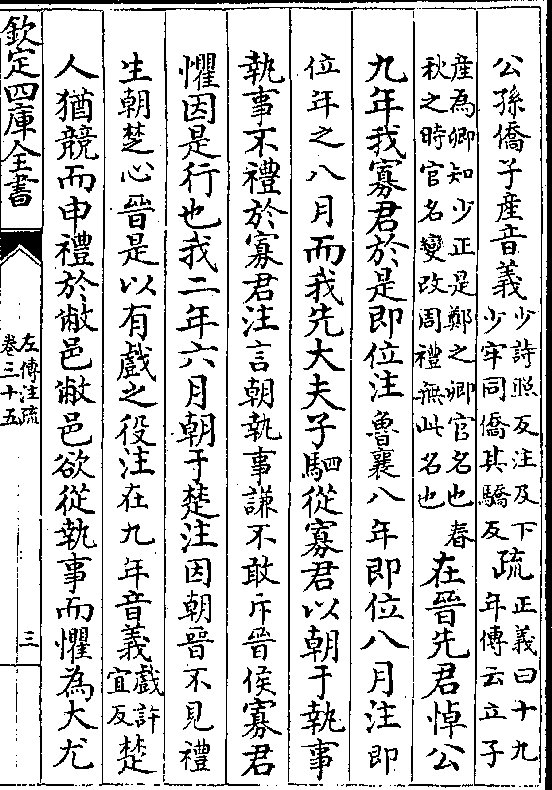 公孫僑子產音義少詩照反注及下少牢同僑其驕反疏正義曰十九年傳云立子
產為卿知少正是鄭之卿官名也春秋之時官名變改周禮無此名也在晉先君悼公
九年我寡君於是即位注魯襄八年即位八月注即
位年之八月而我先大夫子駟從寡君以朝于執事
執事不禮於寡君注言朝執事謙不敢斥晉侯寡君
懼因是行也我二年六月朝于楚注因朝晉不見禮
生朝楚心晉是以有戲之役注在九年音義戲許宜反楚
人猶競而申禮於敝邑敝邑欲從執事而懼為大尤
欽定四庫全書
左傳注疏
卷三十五
三